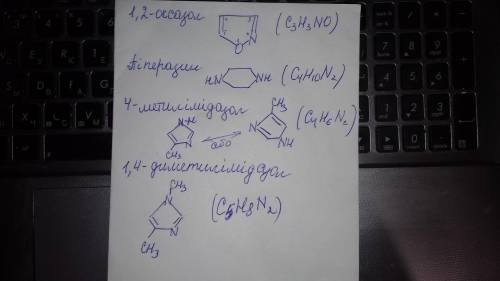 1,2-оксазол
O N (C3H3NO)
Піперазин
HN NH (C4H10N2)
4-метилімідазол
N-H N CH3 або CH3 N NH (C4H6N2)
1,4-диметилімідазол
CH3
N N CH3 (C5H8N2)